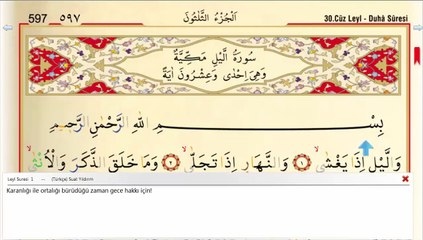 597 ٥٩٧ اَلْجُزْءُ الثَّلٰثُونَ 30.Cüz Leyl - Duhâ Sûresi
سُورَةُ الَّيْلِ مَكِّيَّةٌ
وَهِيَ اِحْدٰى وَعِشْرُونَ اٰيَةً
بِسْمِ اللّٰهِ الرَّحْمٰنِ الرَّحِيمِ
وَالَّيْلِ اِذَا يَغْشٰىۙ ﴿١﴾ وَالنَّهَارِ اِذَا تَجَلّٰىۙ ﴿٢﴾ وَمَا خَلَقَ الذَّكَرَ وَالْاُنْثٰىۙ
Leyl Suresi 1 (Türkçe) Suat Yıldırım
Karanlığı ile ortalığı bürüdüğü zaman gece hakkı için!